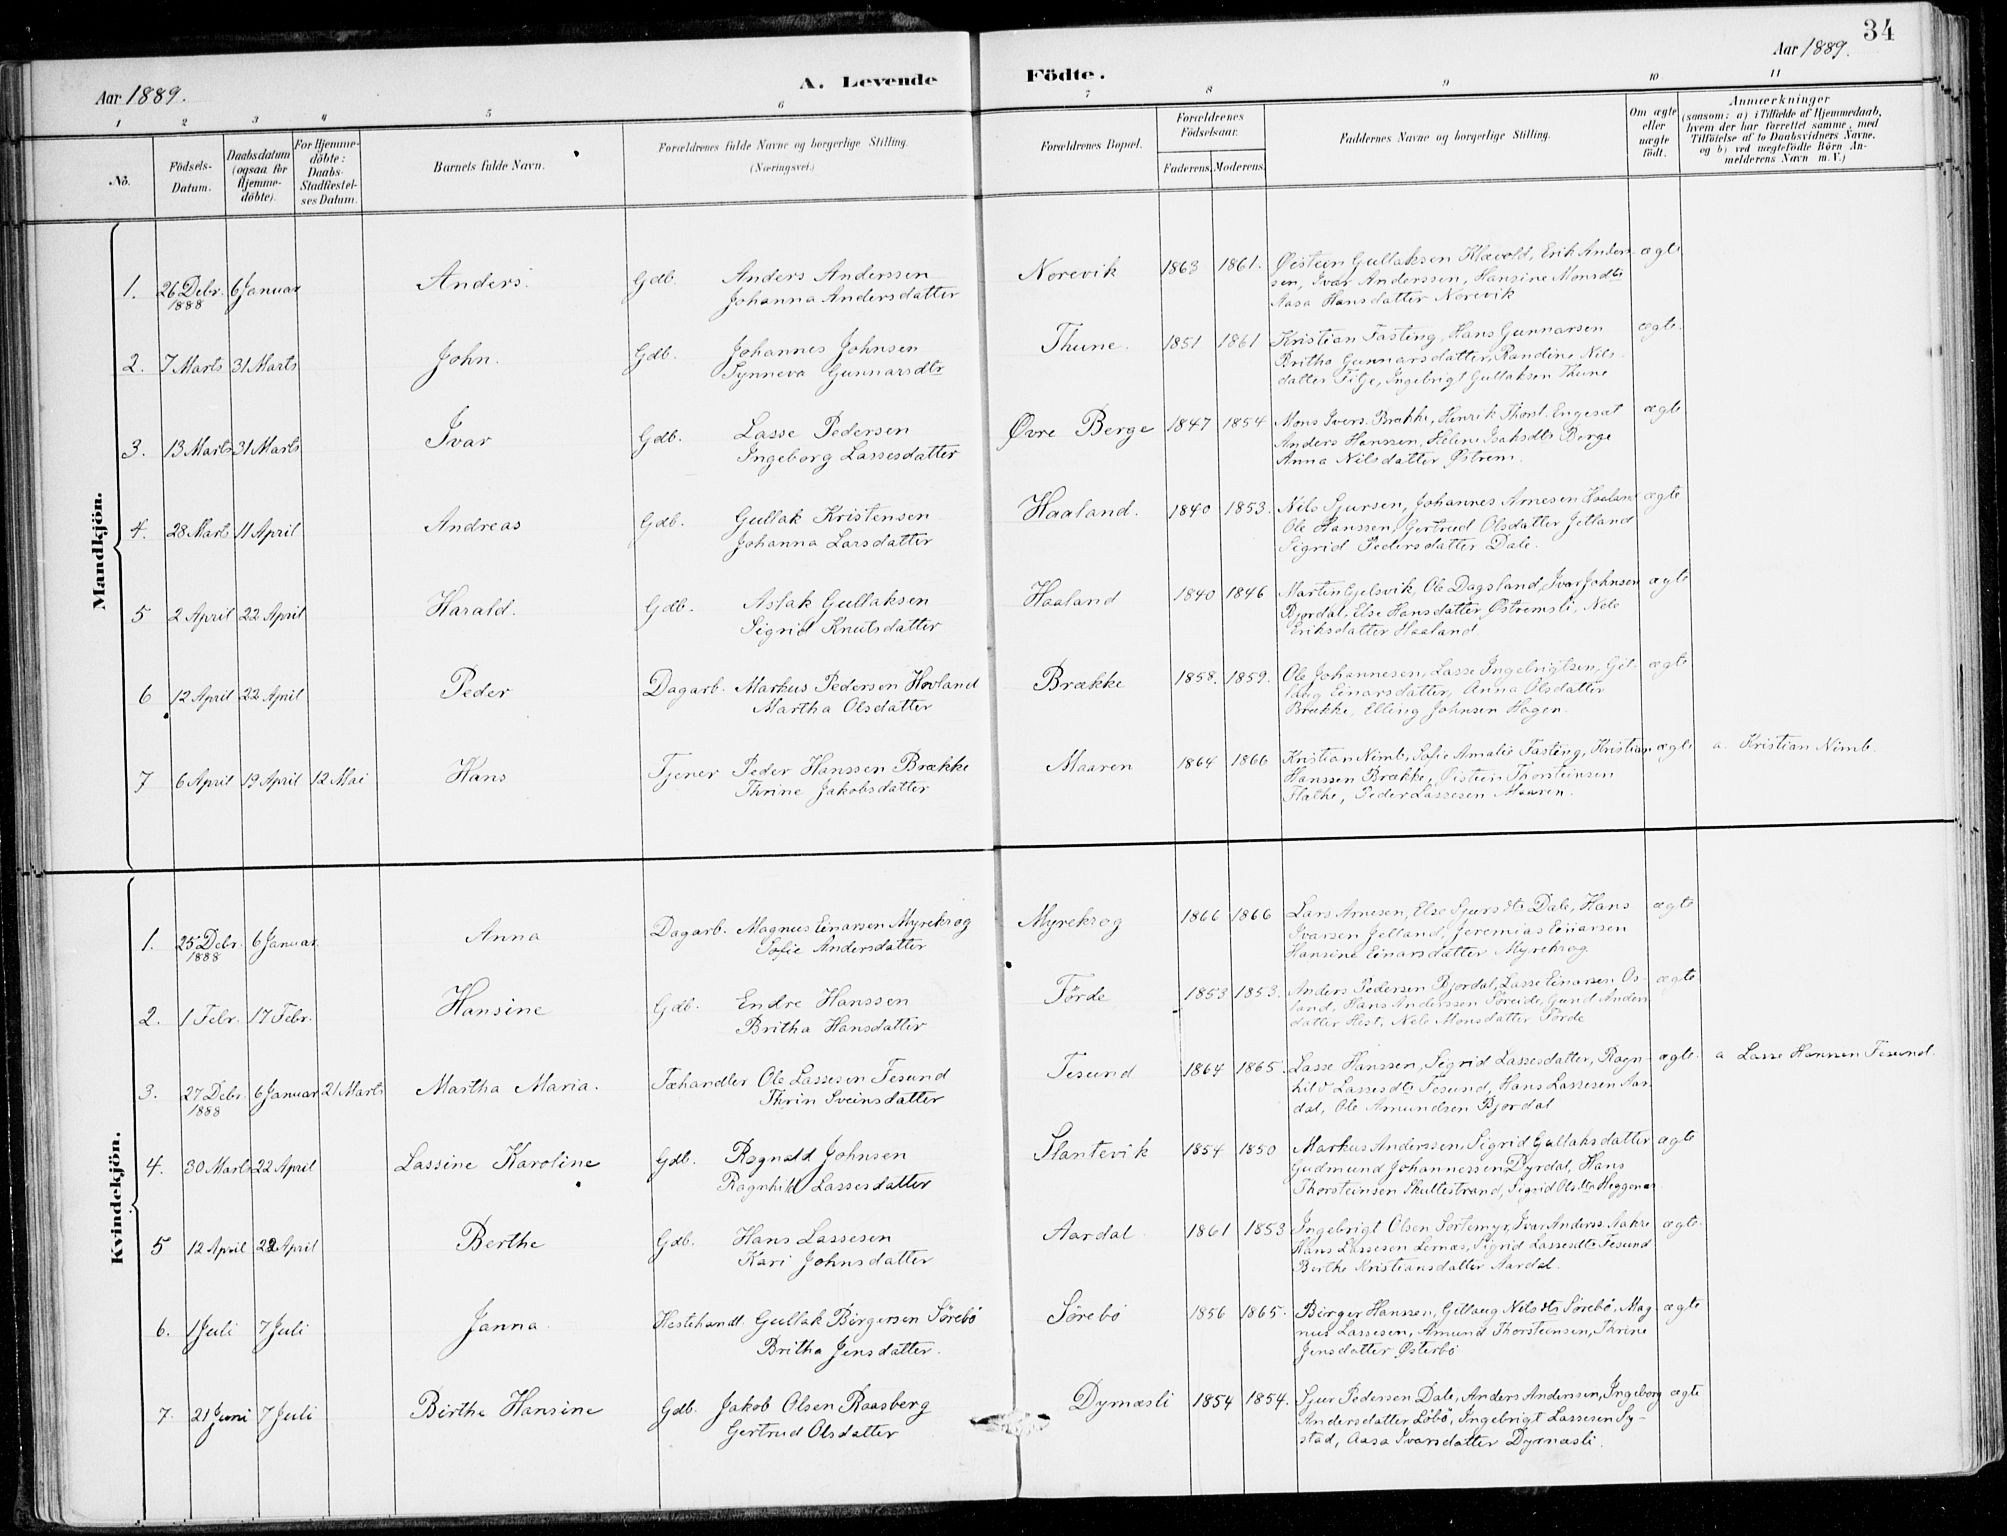 34
Aar 1889. A. Levende Födte. Aar 1889.
1 2 3 4 5 6 7 8 9 10 11
No.
Födsels-Datum.
Daabsdatum (ogsaa for Hjemmedöbte).
For Hjemmedöbte: Daabs-Stadfæstelses Datum.
Barnets fulde Navn.
Forældrenes fulde Navne og borgerlige Stilling. (Næringsvei.)
Forældrenes Bopæl.
Forældrenes Födselsaar.
Faderens. Moderens.
Faddernes Navne og borgerlige Stilling.
Om ægte eller uægte födt.
Anmærkninger
(saasom: a) i Tilfælde af Hjemmedaab, hvem der har forrettet samme, med Tilföielse af to Daabsvidners Navne, og b) ved uægtefödte Börn Anmelderens Navn m. V.)
Mandkjön.
1. 26 Debr. 1888 6 Januar Anders. Gdb. Anders Anderssen Norevik 1863 1861. Øistein Gullaksen Klævold, Erik Anders- ægte
Johanna Andersdatter sen, Ivar Anderssen, Hansine Monsdtr
Aasa Hansdatter Norevik
2. 7 Marts 31 Marts John. Gdb. Johannes Johnsen Thune. 1851 1861 Kristian Fasting, Hans Gunnarsen ægte.
Synneva Gunnarsdtr Britha Gunnarsdatter, Randine Nils-
datter Tilje, Ingebrigt Gullaksen Thune
3. 13 Marts 31 Marts Ivar Gdb. Lasse Pedersen Øvre Berge 1847 1854 Mons Ivers. Brække, Henrik Thorst. Engeset ægte
Ingeborg Lassesdatter Anders Hanssen, Heline Isaksdtr Berge
Anna Nilsdatter Østrem.
4. 28 Marts 11 April Andreas Gdb. Gullak Kristensen Haaland. 1840 1853. Nils Sjursen, Johannes Arnesen Haaland ægte
Johanna Larsdatter Ole Hanssen, Gertrud Olsdatter Jetland
Sigrid Pedersdatter Dale.
5 2 April 22 April Harald. Gdb. Aslak Gullaksen Haaland 1840 1846 Martin Gjelsvik, Ole Dagsland, Ivar Johnsen ægte
Sigrid Knutsdatter Bjordal, Else Hansdatter Østremsli, Nele
Eriksdatter Haaland.
6 12 April 22 April Peder Dagarb. Markus Pedersen Hovland Brække 1858. 1859. Ole Johannesen, Lasse Ingebrigtsen, Git- ægte
Martha Olsdatter laug Einarsdatter, Anna Olsdatter
Brække, Elling Johnsen Hagen.
7 6 April 13 April 12 Mai Hans Tjener Peder Hanssen Brække Maaren 1864 1866 Kristian Nimb, Sofie Amalie Fasting, Kristian ægte a. Kristian Nimb.
Thrine Jakobsdatter Hanssen Brække, Øistein Thorsteinsen
Flathe, Peder Lassesen Maaren.
Kvindekjön.
1. 25 Debr. 1888 6 Januar Anna Dagarb. Magnus Einarsen Myrekrog Myrekrog 1866 1866 Lars Arnesen, Else Sjursdtr Dale, Hans ægte
Sofie Andersdatter Ivarsen Jetland, Jeremias Einarsen
Hansine Einarsdatter Myrekrog
2. 1 Febr. 17 Febr. Hansine Gdb. Endre Hanssen Förde 1853 1853. Anders Pedersen Bjordal, Lasse Einarsen Os- ægte
Britha Hansdatter land, Hans Anderssen Søreide, Gund Anders-
datter Hest, Nele Monsdatter Förde
3. 27 Debr. 1888 6 Januar 21 Marts Martha Maria. Fæhandler Ole Lassesen Tesund Tesund 1864 1865. Lasse Hanssen, Sigrid Lassesdatter, Ragn- ægte. a Lasse Hanssen Tesund.
Thrin Sveinsdatter hild Lassesdtr Tesund, Hans Lassesen Aar-
dal, Ole Amundsen Bjordal
4. 30 Marts 22 April Lassine Karoline Gdb. Ragnald Johnsen Slantevik 1854 1850 Markus Anderssen, Sigrid Gullaksdatter ægte
Ragnhild Lassesdatter Gudmund Johannessen Dyrdal, Hans
Thorsteinsen Skullestrand, Sigrid Olsdtr
5 12 April 22 April Berthe Gdb. Hans Lassesen Aardal 1861 1853 Ingebrigt Olsen Sortemyr, Ivar Anderss. Aakre ægte.
Kari Johnsdatter Hans Lassesen Lernæs, Sigrid Lassesdtr Tesund
Berthe Kristiansdatter Aardal.
6. 1 Juli 7 Juli Janna. Hestehandl. Gullak Börgersen Sörebö Sörebö 1856 1865. Börger Hanssen, Gitlaug Nilsdtr Sörebö, Mag- ægte
Britha Jensdatter. nus Lassesen, Amund Thorsteinsen, Thrine
Jensdatter Østerbö
7. 21 Juni 7 Juli Birthe Hansine Gdb. Jakob Olsen Raasberg Dyrnæsli 1854 1854. Sjur Pedersen Dale, Anders Anderssen, Ingeborg ægte
Gertrud Olsdatter Andersdatter Löbö, Ingebrigt Lassesen Sy-
stad, Aasa Ivarsdatter Dyrnæsli.